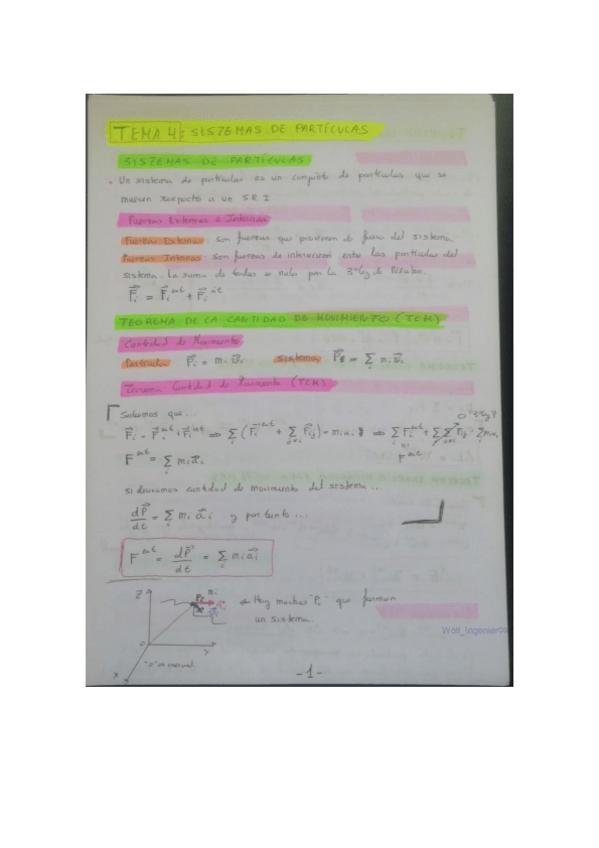 TEMA 4: SISTEMAS DE PARTÍCULAS
SISTEMAS DE PARTÍCULAS
• Un sistema de partículas es un conjunto de partículas que se
mueven respecto a un S.R.I
Fuerzas Externas e Internas
Fuerzas Externas: Son fuerzas que provienen de fuera del sistema
Fuerzas Internas: Son fuerzas de interacción entre las partículas del
sistema. La suma de todas es nula por la 3ª ley de Newton.
F⃗i = F⃗i^ext + F⃗i^int
TEOREMA DE LA CANTIDAD DE MOVIMIENTO (TCM)
Cantidad de Movimiento
Partícula P⃗i = mi v⃗i Sistema P⃗ = Σi mi v⃗i
Teorema Cantidad de Movimiento (TCM)
Sabemos que...
0 3ª ley
F⃗i = F⃗i^ext + F⃗i^int ⇒ Σi (F⃗i^ext + Σj≠i F⃗ij) = mi ai ⇒ Σi F⃗i^ext + ΣΣ F⃗ij = Σ mi ai
F^ext = Σi mi a⃗i F^ext
si derivamos cantidad de movimiento del sistema...
dP⃗/dt = Σi mi a⃗i y por tanto...
F^ext = dP⃗/dt = Σi mi a⃗i
Z Pi mi
Hay muchas "Pi" que forman
un sistema.
0 Y
X "0" es inercial
Wolf_Ingeniero
-1-